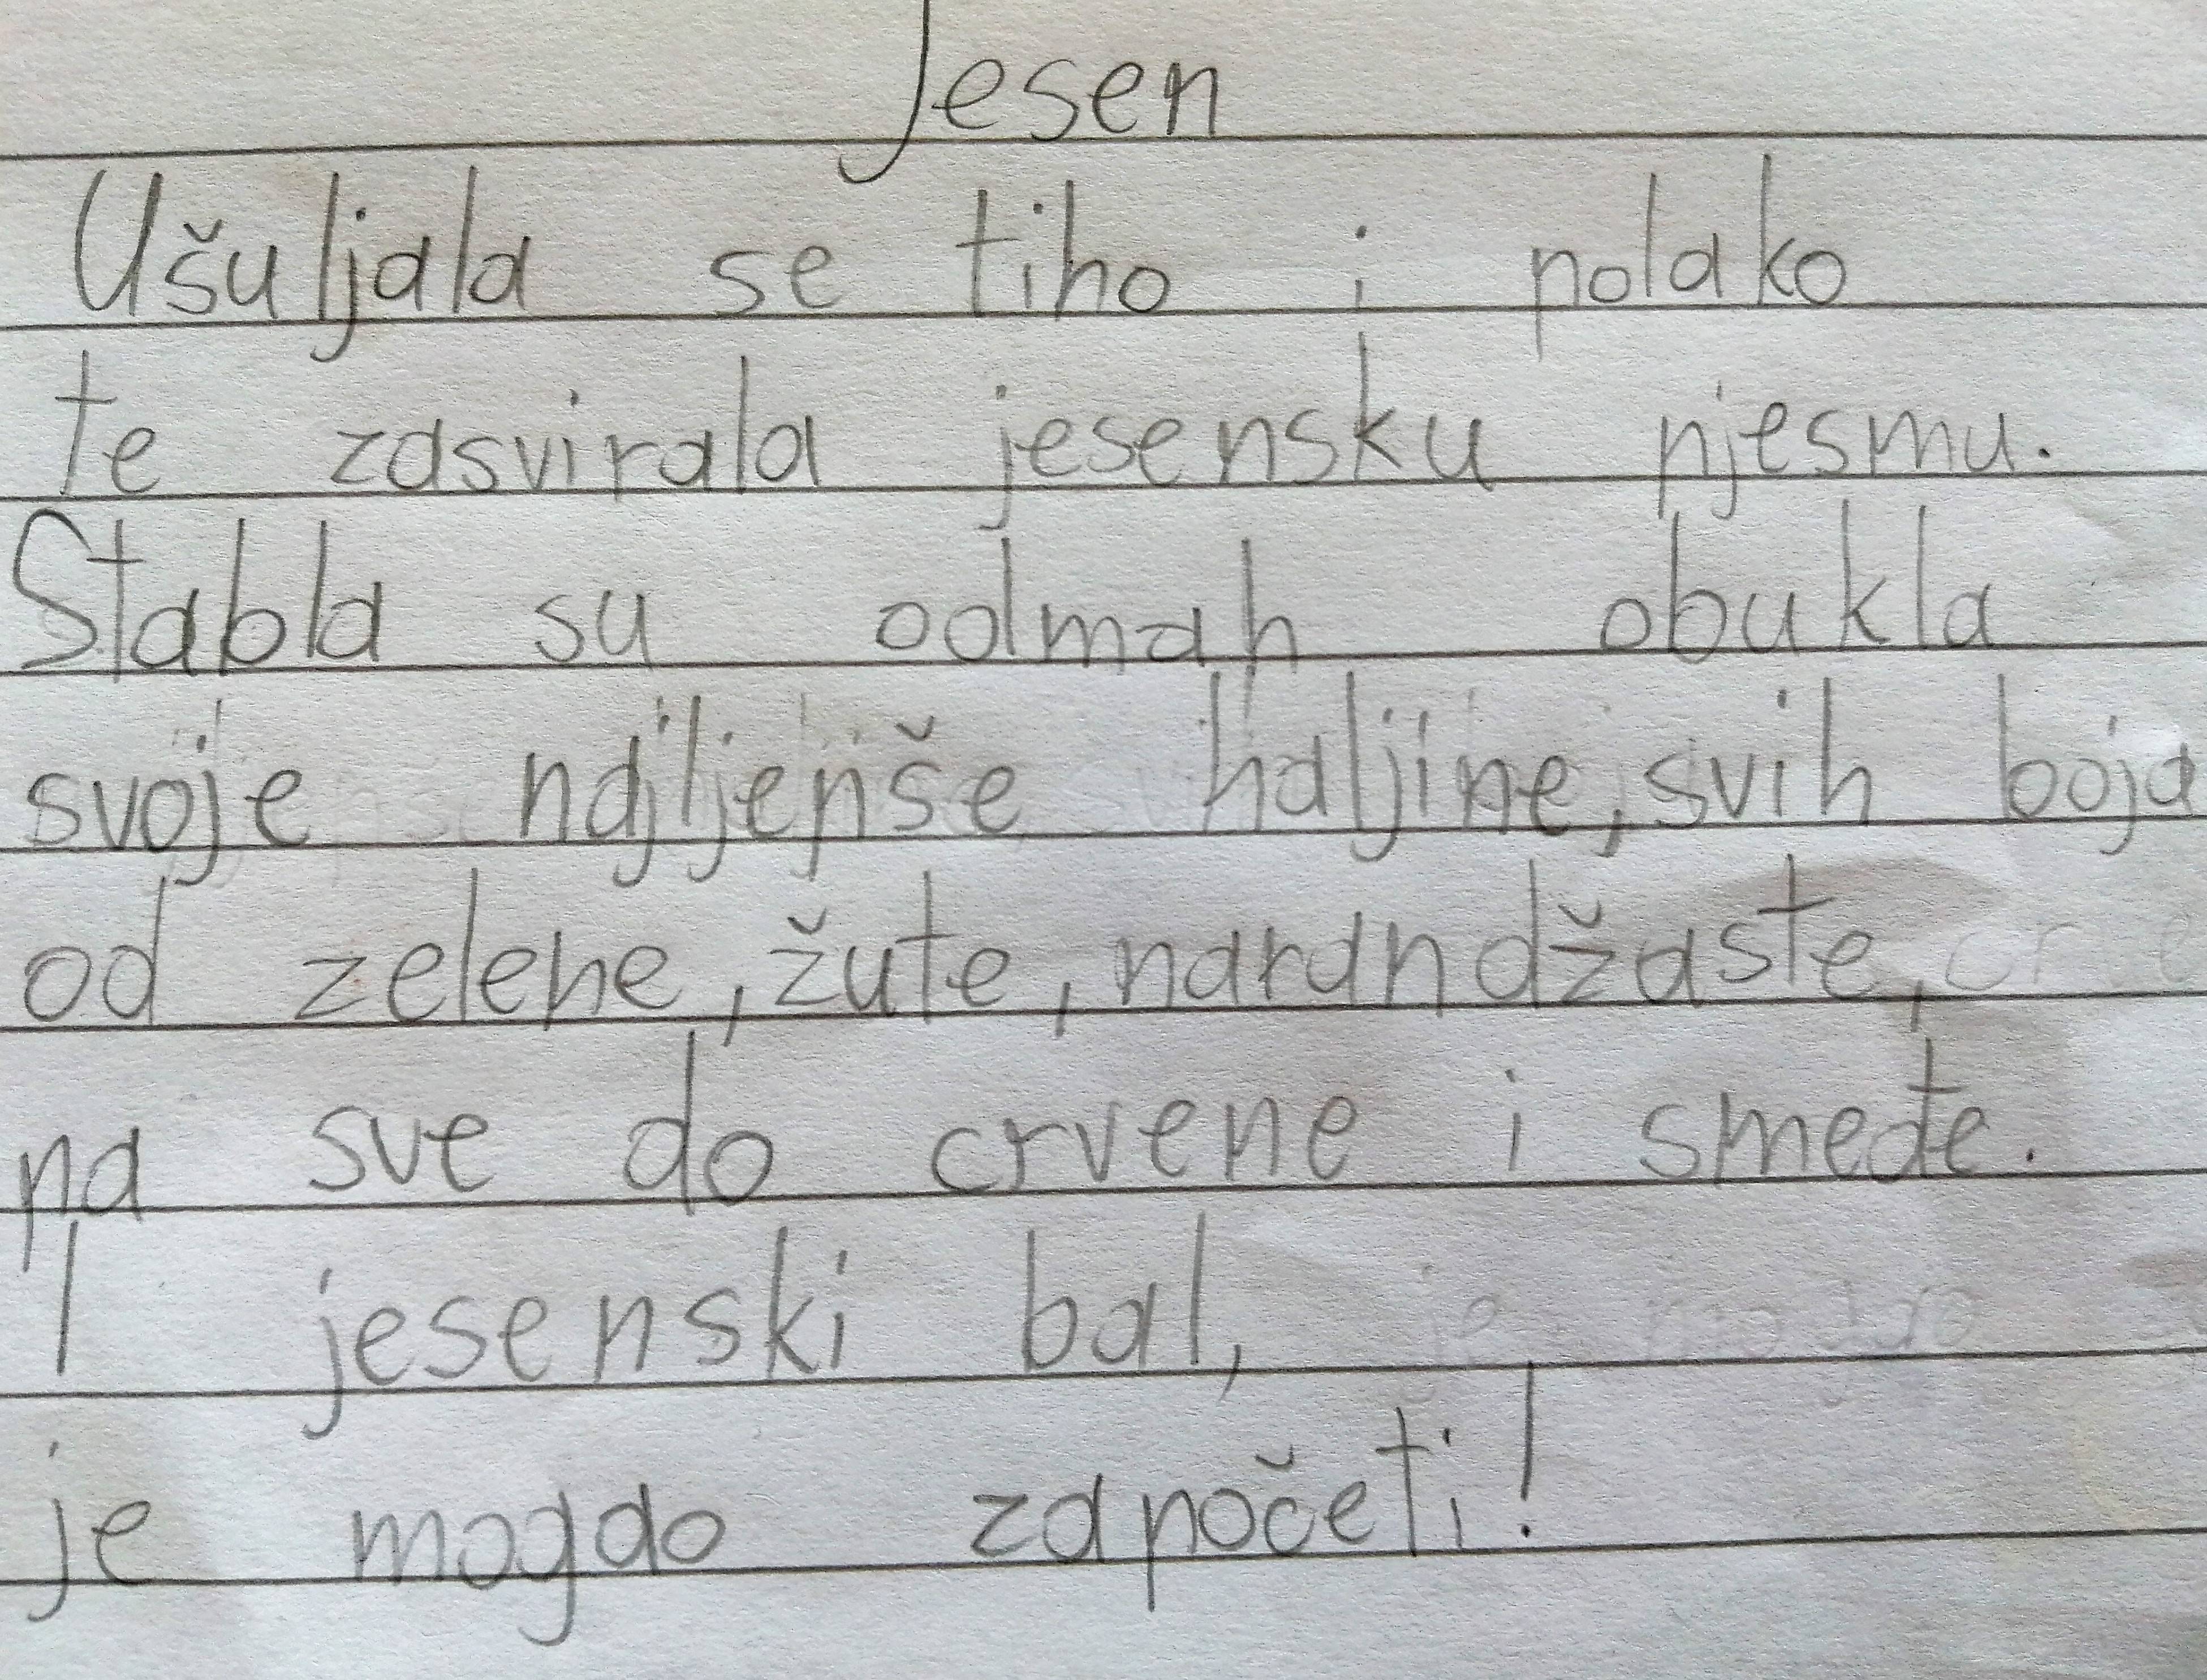 Jesen
Ušuljala se tiho i polako
te zasvirala jesensku pjesmu.
Stabla su odmah obukla
svoje najljepše haljine, svih boja
od zelene, žute, narandžaste,
pa sve do crvene i smeđe.
I jesenski bal,
je mogao započeti!